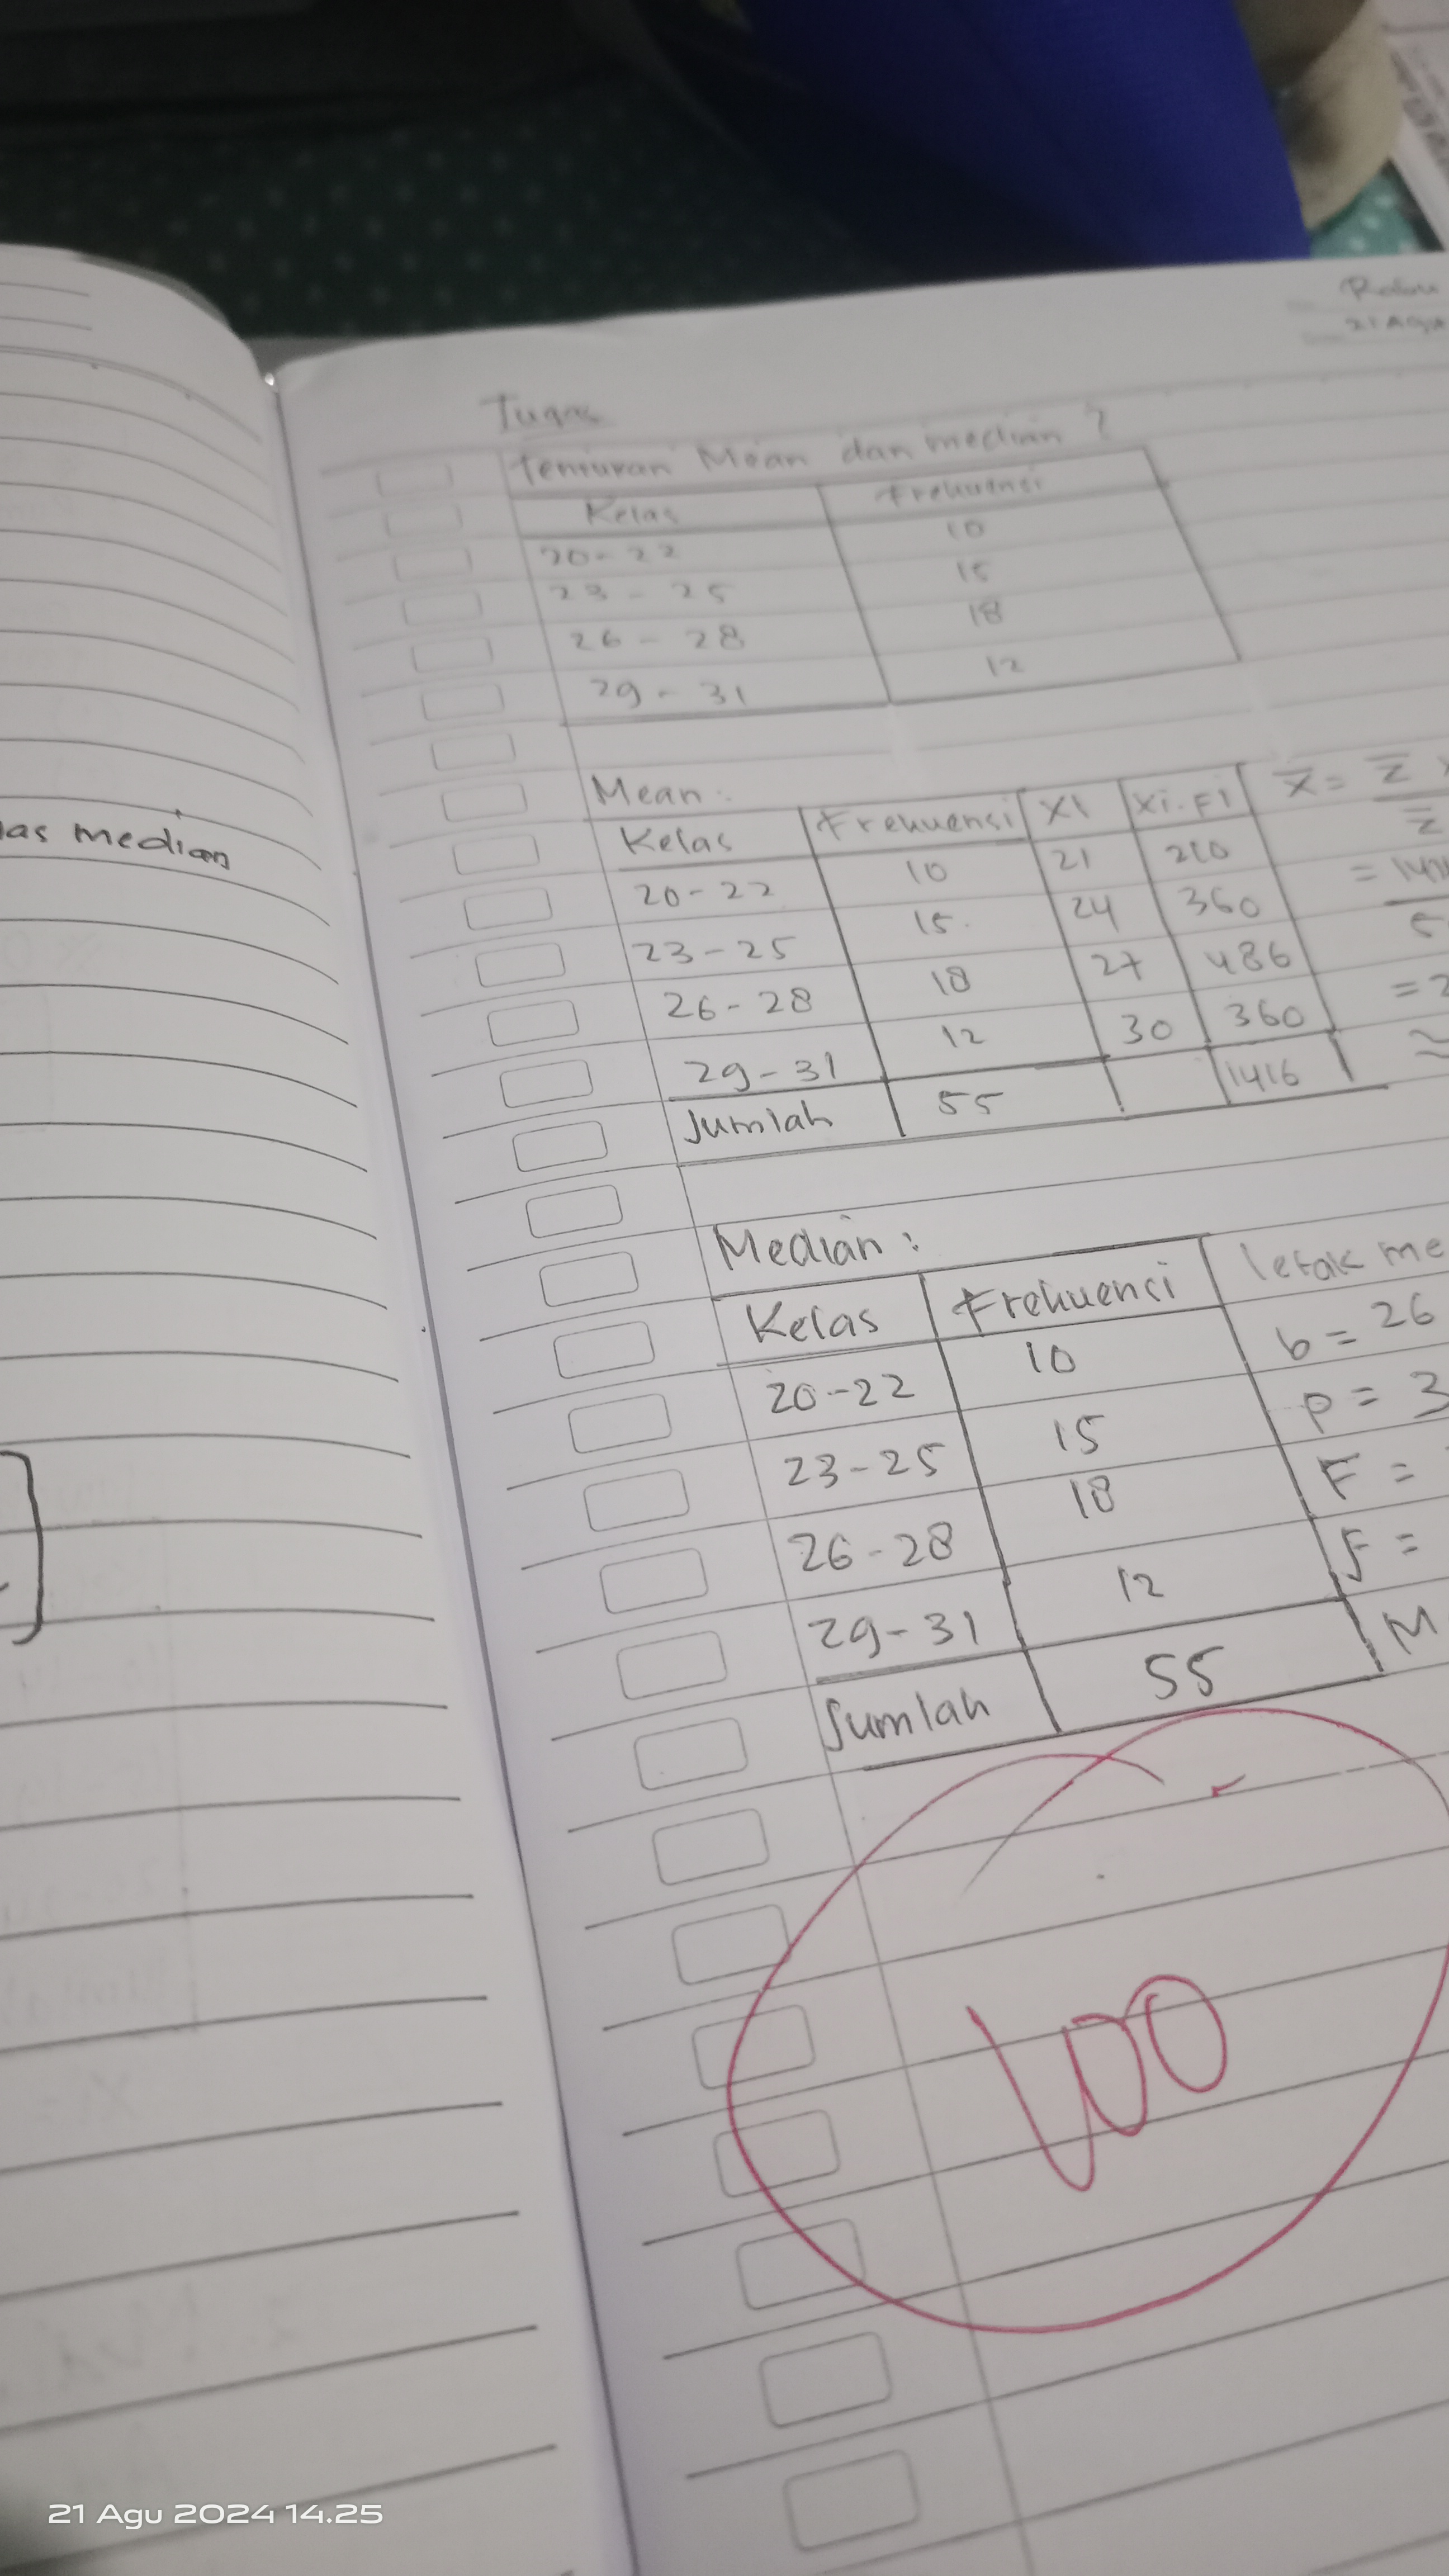 Rabu
21 Agu
Tugas
Tentukan Mean dan median ?
Kelas Frekuensi
20-22 10
23-25 15
26-28 18
29-31 12
Mean:
Kelas Frekuensi Xi Xi.Fi
20-22 10 21 210
23-25 15 24 360
26-28 18 27 486
29-31 12 30 360
Jumlah 55 1416
x̄ =
Median:
Kelas Frekuensi letak me
20-22 10 b = 26
23-25 15 p = 3
26-28 18 F =
29-31 12 f =
Jumlah 55 M
100
las median
21 Agu 2024 14.25